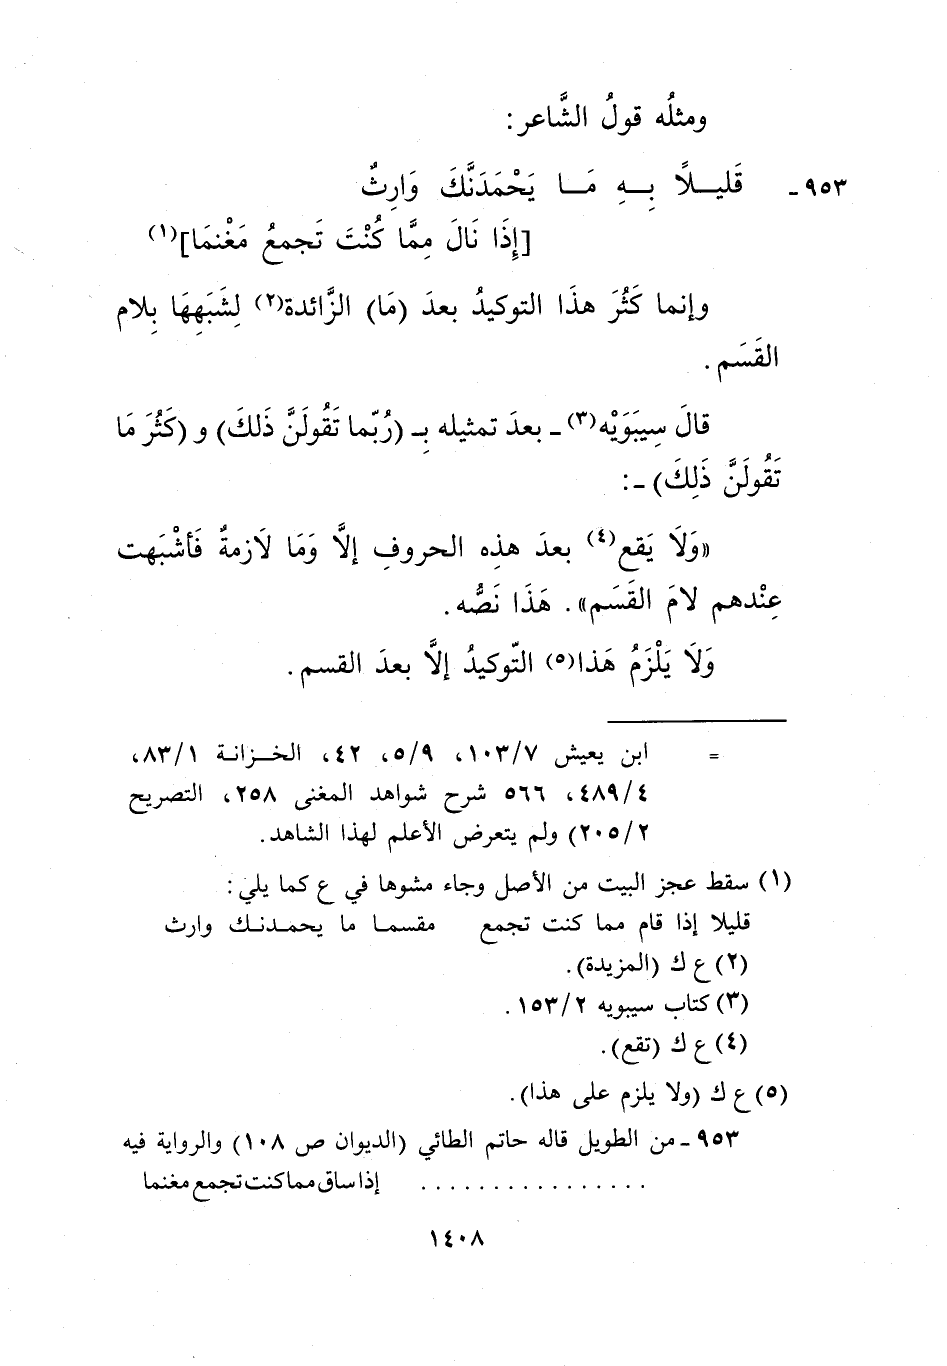 ومثلُه قولُ الشَّاعر:
٩٥٣ـ قَليـلاً بِـهِ مَـا يَحْمَدَنَّكَ وَارِثٌ
[إِذَا نَالَ مِمَّا كُنْتَ تَجمعُ مَغْنمَا](١)
وإنما كَثُرَ هذَا التوكيدُ بعدَ (مَا) الزَّائدة(٢) لِشَبَهِهَا بِلام
القَسَم.
قالَ سِيبَوَيْه(٣) ـ بعدَ تمثيلِه بـ (رُبّما تَقُولَنَّ ذَلكَ) و (كَثُرَ مَا
تَقُولَنَّ ذَلِكَ) ـ:
«وَلَا يَقع(٤) بعدَ هذِه الحروفِ إلَّا وَمَا لَازمةٌ فَأشْبَهت
عِنْدهم لامَ القَسَم». هَذَا نَصُّه.
وَلَا يَلْزَمُ هَذا(٥) التّوكيدُ إلَّا بعدَ القسم.
= ابن يعيش ١٠٣/٧، ٥/٩، ٤٢، الخـزانـة ٨٣/١،
٤٨٩/٤، ٥٦٦ شرح شواهد المغنى ٢٥٨، التصريح
٢٠٥/٢) ولم يتعرض الأعلم لهذا الشاهد.
(١) سقط عجز البيت من الأصل وجاء مشوها في ع كما يلي:
قليلا إذا قام مما كنت تجمع مقسمـا ما يحمـدنـك وارث
(٢) ع ك (المزيدة).
(٣) كتاب سيبويه ١٥٣/٢.
(٤) ع ك (تقع).
(٥) ع ك (ولا يلزم على هذا).
٩٥٣ ـ من الطويل قاله حاتم الطائي (الديوان ص ١٠٨) والرواية فيه
. . . . . . . . . . . . . . . . إذا ساق مما كنت تجمع مغنما
١٤٠٨